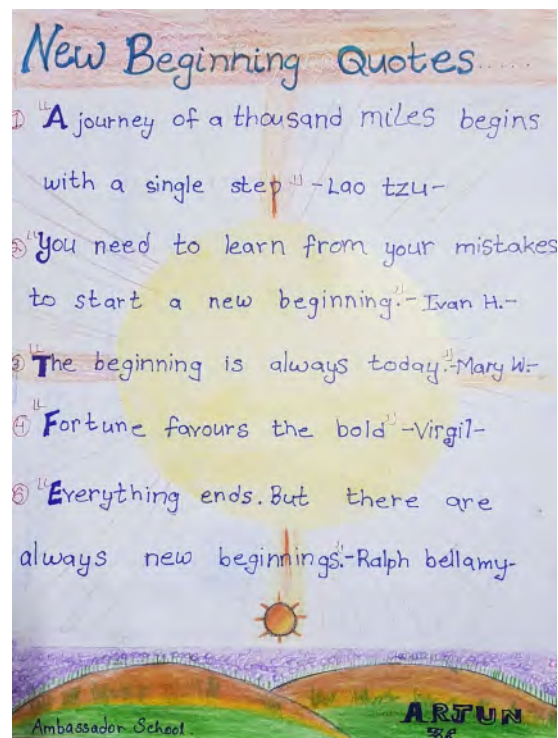 New Beginning Quotes.....
① "A journey of a thousand miles begins
with a single step" -Lao tzu-
② "You need to learn from your mistakes
to start a new beginning." - Ivan H.-
③ "The beginning is always today."-Mary W.-
④ "Fortune favours the bold" -Virgil-
⑤ "Everything ends. But there are
always new beginnings."-Ralph bellamy-
ARJUN
Ambassador School.